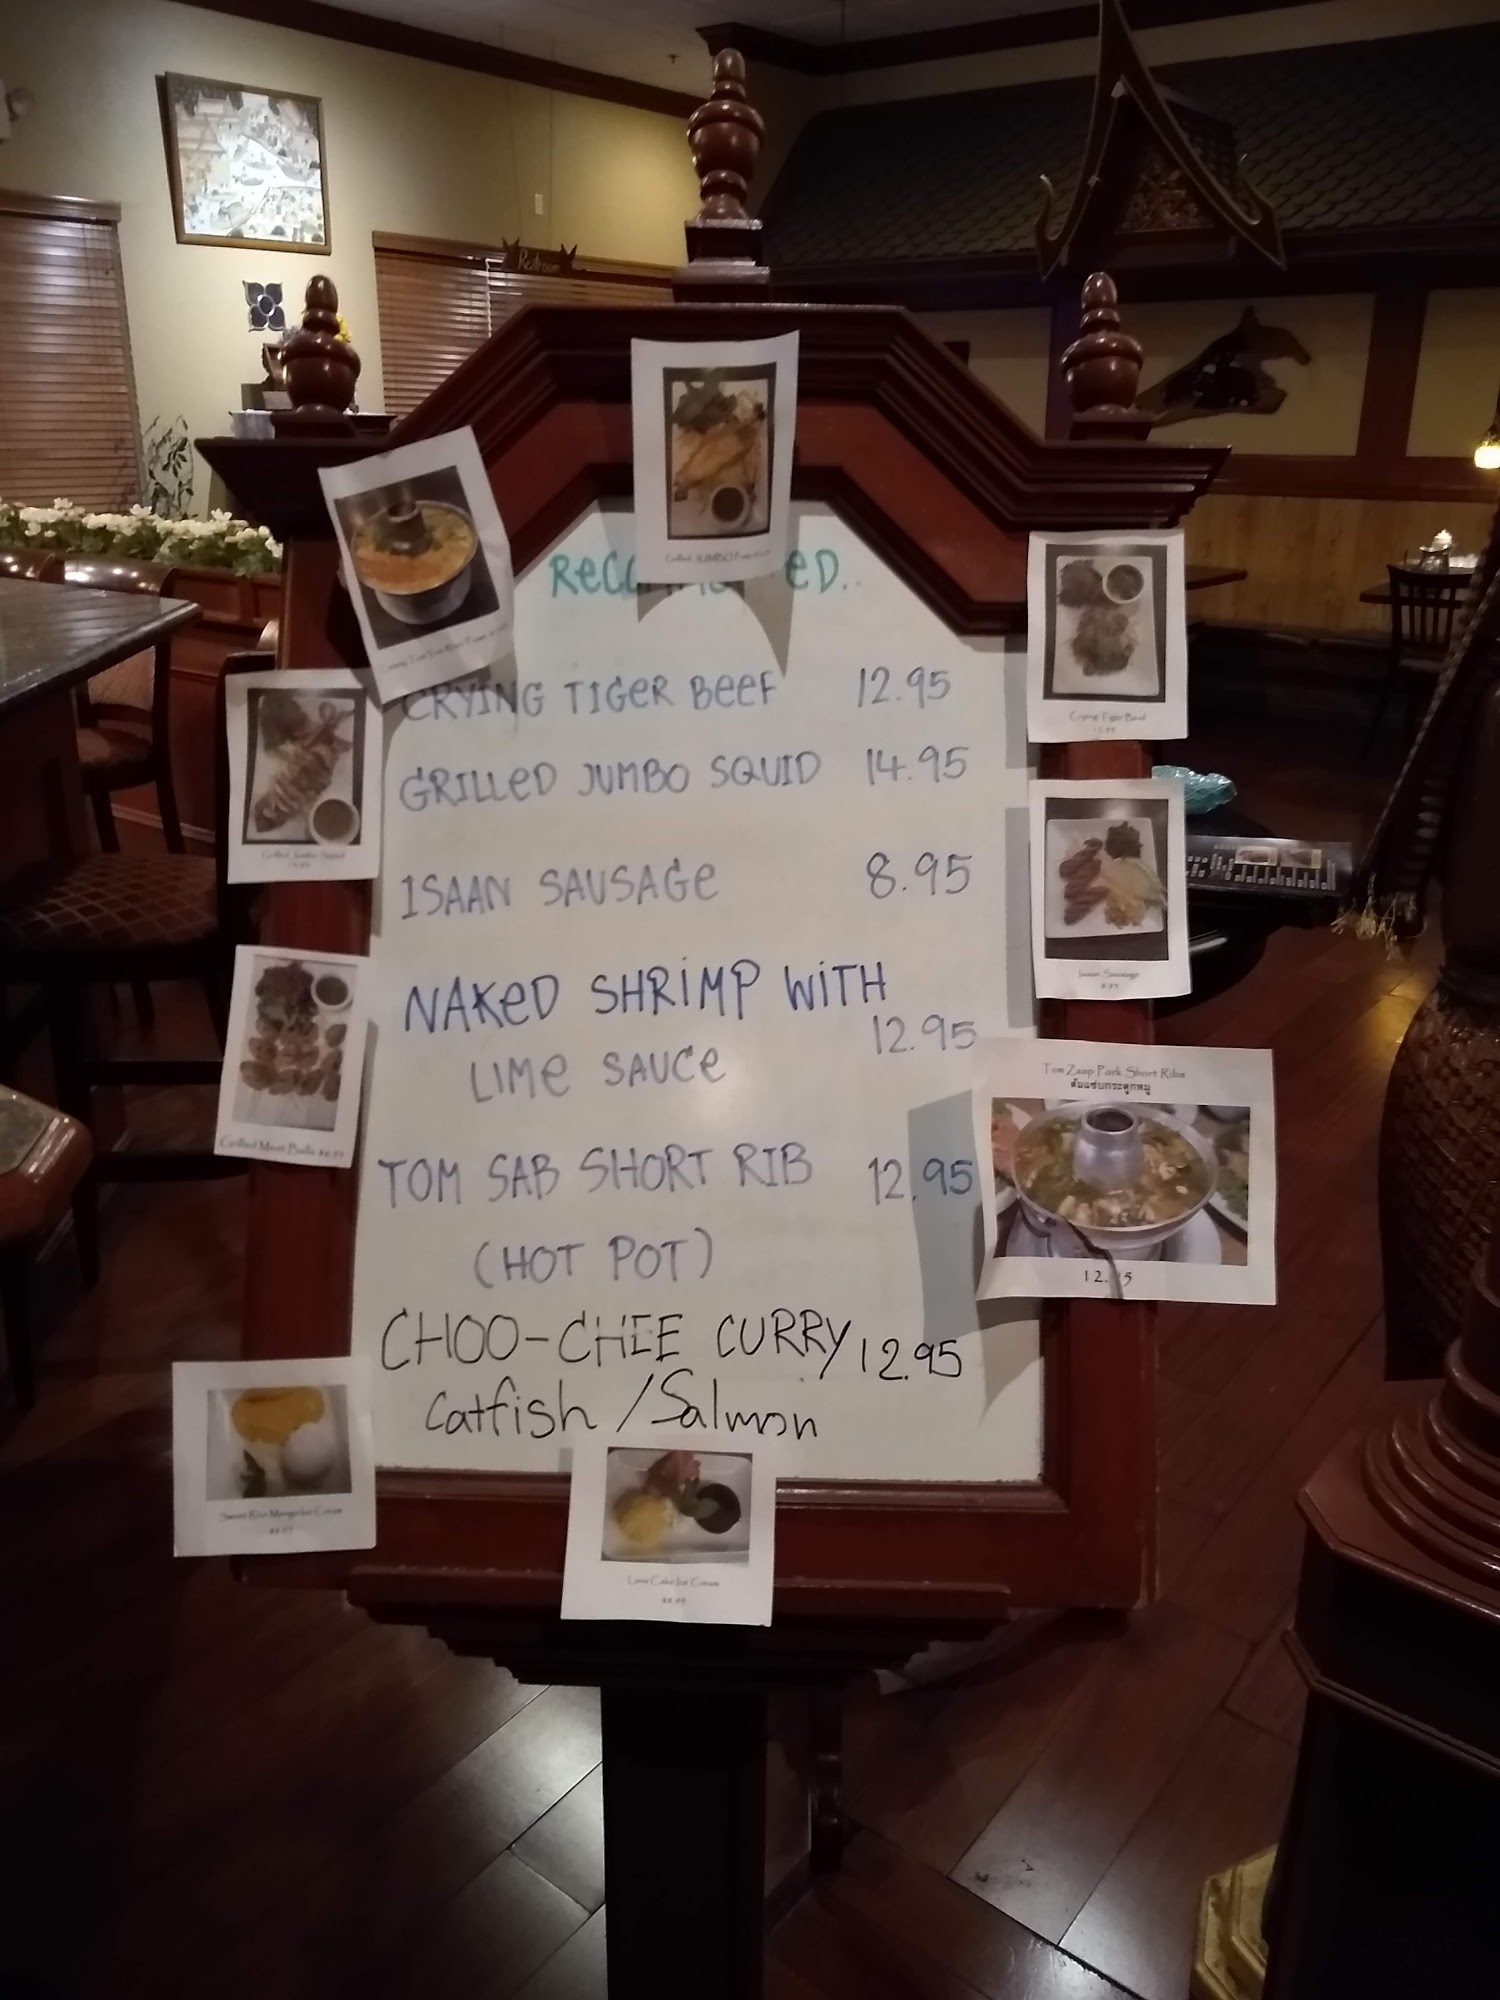 Restroom
CRYING TIGER BEEF 12.95
GRILLED JUMBO SQUID 14.95
ISAAN SAUSAGE 8.95
NAKED SHRIMP WITH
LIME SAUCE 12.95
TOM SAB SHORT RIB 12.95
(HOT POT)
CHOO-CHEE CURRY 12.95
Catfish / Salmon
Grilled JUMBO
Crying Tiger Beef
Grilled Jumbo Squid
Isaan Sausage
8.95
Grilled Meat Balls
Tom Zaap Pork Short Ribs
ต้มแซ่บกระดูกหมู
Sweet Rice Mango Ice Cream
Lava Cake Ice Cream